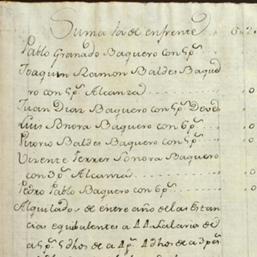 Suma la de enfrente 0.2
Pablo Granado Baquero con 5ps
Joaquin Ramon Baldes Baque
ro con 5ps Alcanza 0
Juan Diaz Baquero con 5ps
Luis Sonora Baquero con 6ps 0
Baldes Baquero con 5ps 0
Vizente Ferrer Sonora Baquero
con 3ps Alcanza 0
Pedro Pablo Baquero con 6ps 0
Alquilados de entre año de las Estan
cias equibalentes a 11 Salarios de
a 5ps 5 dhos de a 4ps 1 dho de a 3